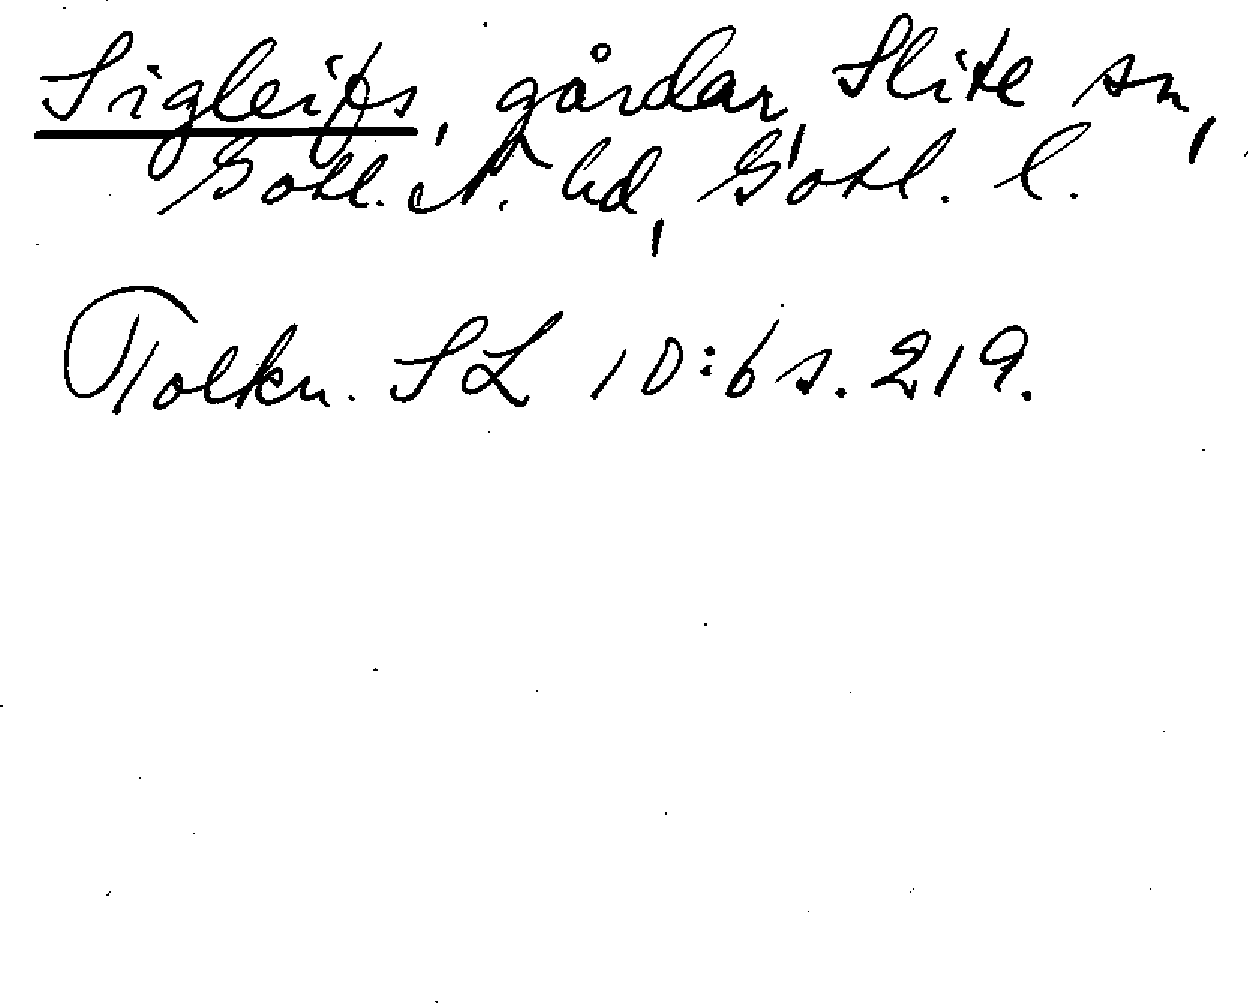 Sigleifs, gårdar, Slite sn,
Gotl. N. hd, Gotl. l.
Tolkn. SL 10:6 s. 219.